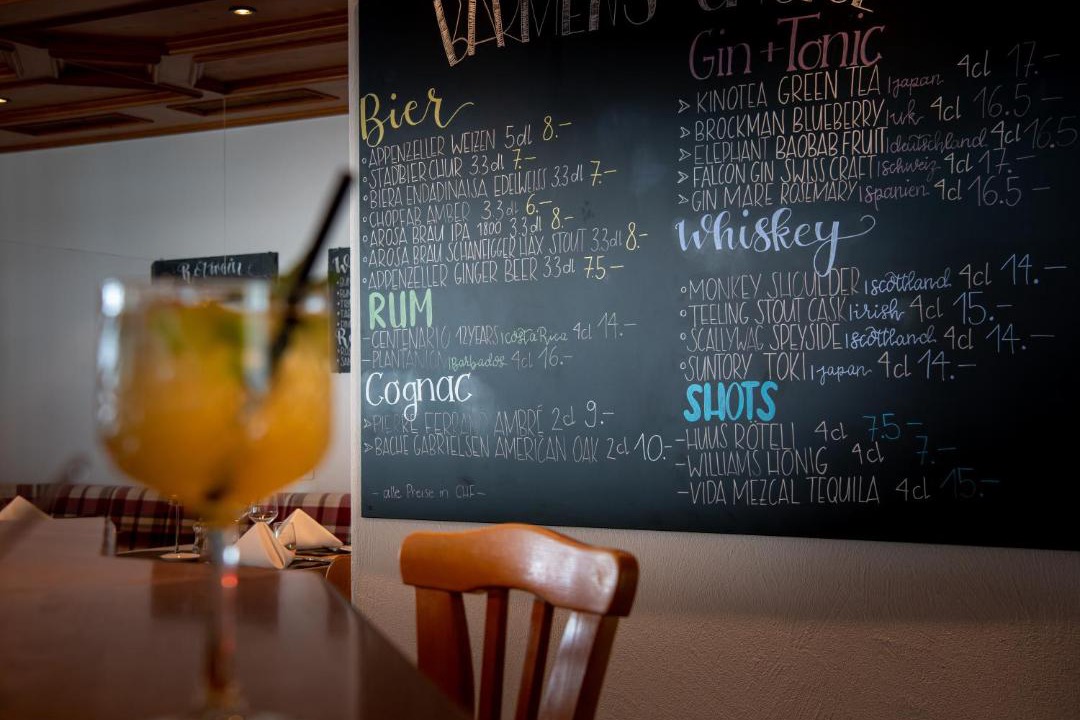 Bier
APPENZELLER WEIZEN 5dl 8.–
STADTBIER CHUR 3.3dl 7.–
BIERA ENDADINAISA EDELWEISS 3.3dl 7.–
CHOPFAB AMBER 3.3dl 6.–
AROSA BRÄU IPA 1800 3.3dl 8.–
AROSA BRÄU SCHANFIGGER HAX STOUT 3.3dl 8.–
APPENZELLER GINGER BEER 3.3dl 7.5–
RUM
– CENTENARIO 12YEARS | Costa Rica 4cl 14.–
– PLANTATION | Barbados 4cl 16.–
Cognac
PIERRE FERRAND AMBRÉ 2cl 9.–
BACHE GABRIELSEN AMERICAN OAK 2cl 10.–
– alle Preise in CHF –
Gin + Tonic
KINOTEA GREEN TEA | japan 4cl 17.–
BROCKMAN BLUEBERRY | uk 4cl 16.5 –
ELEPHANT BAOBAB FRUIT | deutschland 4cl 16.5
FALCON GIN SWISS CRAFT | schweiz 4cl 17.–
GIN MARE ROSEMARY | spanien 4cl 16.5 –
Whiskey
MONKEY SHOULDER | scottland 4cl 14.–
TEELING STOUT CASK | irish 4cl 15.–
SCALLYWAG SPEYSIDE | scottland 4cl 14.–
SUNTORY TOKI | japan 4cl 14.–
SHOTS
– HUUS RÖTELI 4cl 7.5 –
– WILLIAMS HONIG 4cl 7.–
– VIDA MEZCAL TEQUILA 4cl 15.–